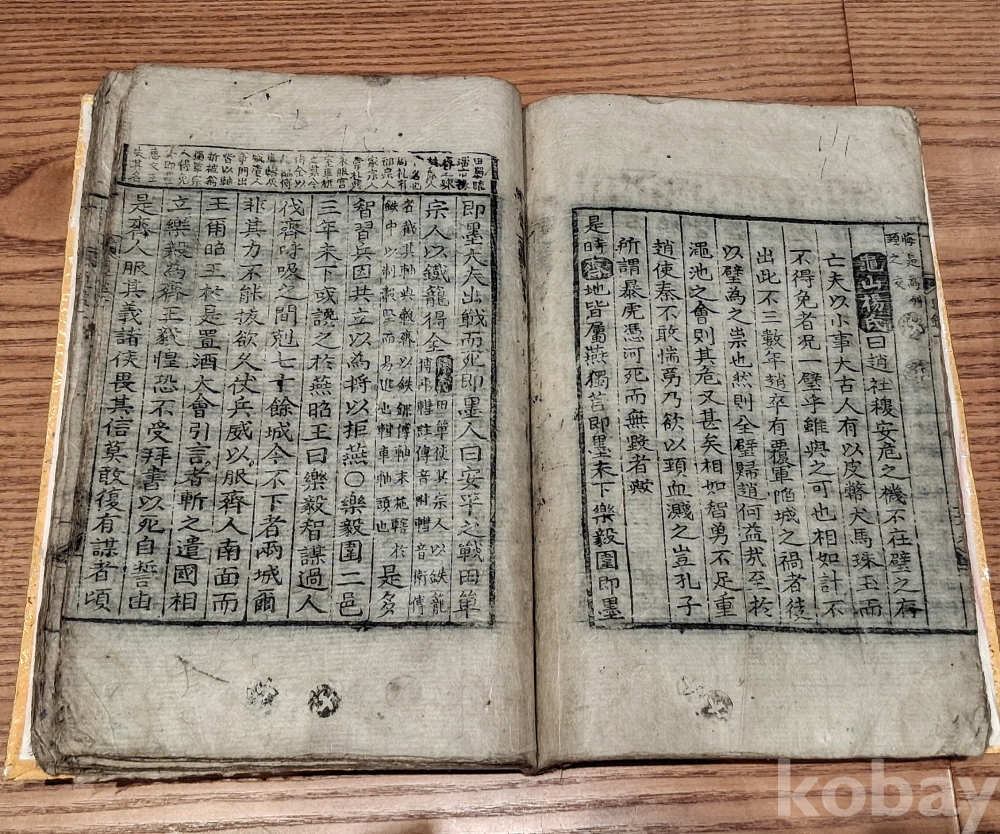 龜山楊氏曰趙社稷安危之機不在璧之存
亡夫以小事大古人有以皮幣犬馬珠玉而
不得免者況一璧乎雖與之可也相如計不
出此不三數年趙卒有覆軍陷城之禍者徒
以璧為之祟也然則全璧歸趙何益哉至於
澠池之會則其危又甚矣相如智勇不足重
趙使秦不敢惴勇乃欲以頸血濺之豈孔子
所謂暴虎憑河死而無者歟
是時齊地皆屬燕獨莒即墨未下樂毅圍即墨
即墨大夫出戰而死即墨人曰安平之戰田單
宗人以鐵籠得全
田單使其宗人以鉄籠
轊註傅音附轊音衛傅
者截其軸與轂齊以鉄鍱傅軸末施轄於
鉄中以制轂堅而易進也轊車軸頭也
是多
智習兵因共立以為將以拒燕○樂毅圍二邑
三年未下或讒之於燕昭王曰樂毅智謀過人
伐齊呼吸之間剋七十餘城今不下者兩城爾
非其力不能拔欲久伏兵威以服齊人南面而
王爾昭王於是置酒大會引言者斬之遣國相
立樂毅為齊王毅惶恐不受拜書以死自誓由
是齊人服其義諸侯畏其信莫敢復有謀者頃
kobay